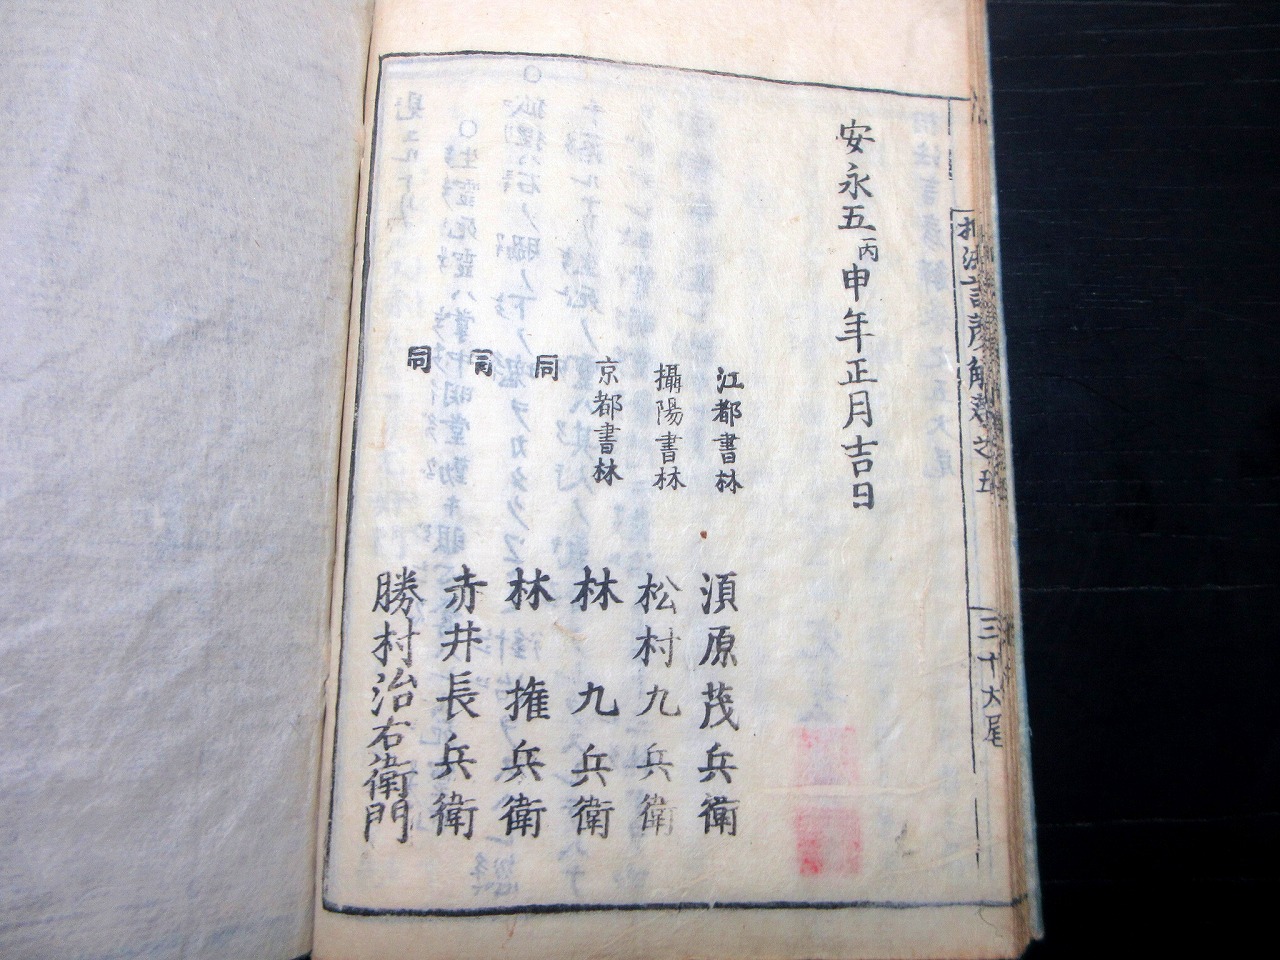 安永五丙申年正月吉日
江都書林 須原茂兵衛
攝陽書林 松村九兵衛
京都書林 林九兵衛
同 林権兵衛
同 赤井長兵衛
同 勝村治右衛門
解
之五
三十大尾